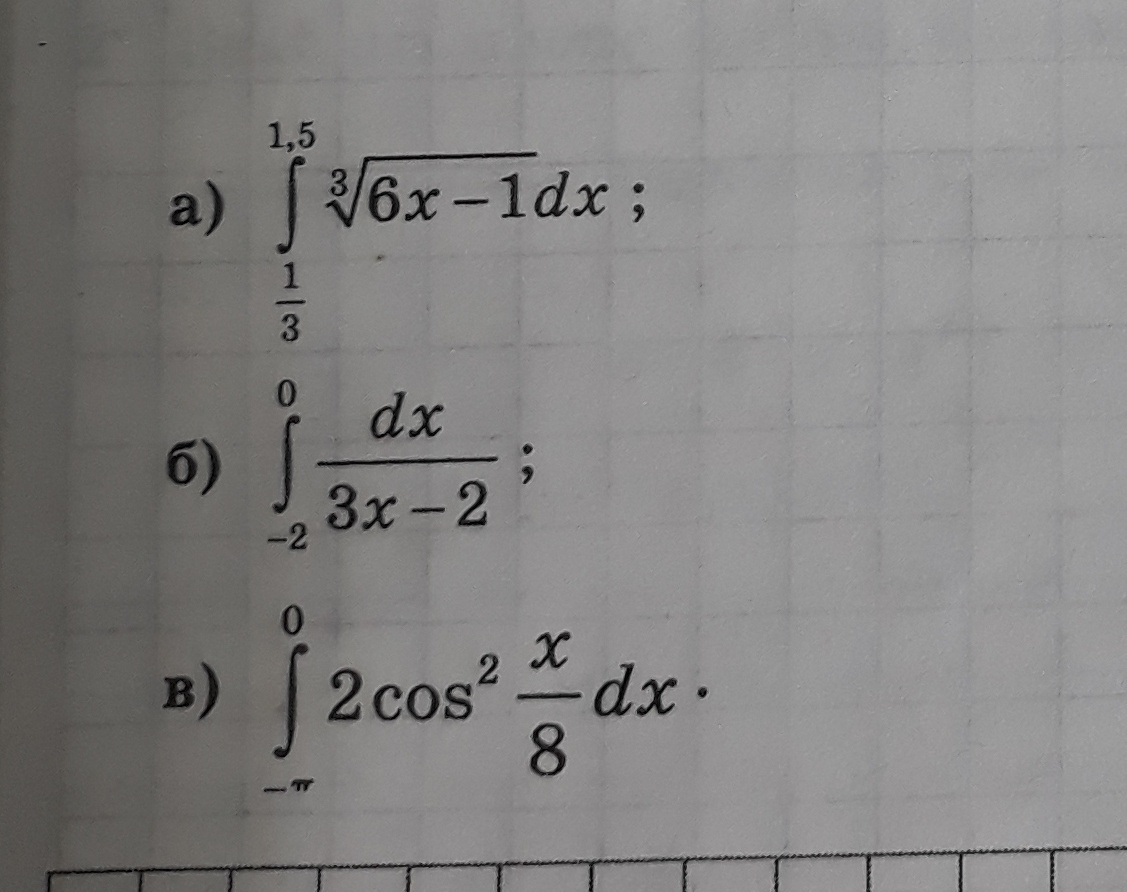 а) ∫_{1/3}^{1,5} ∛(6x – 1)dx ;
б) ∫_{–2}^{0} dx/(3x – 2) ;
в) ∫_{–π}^{0} 2cos² x/8 dx .